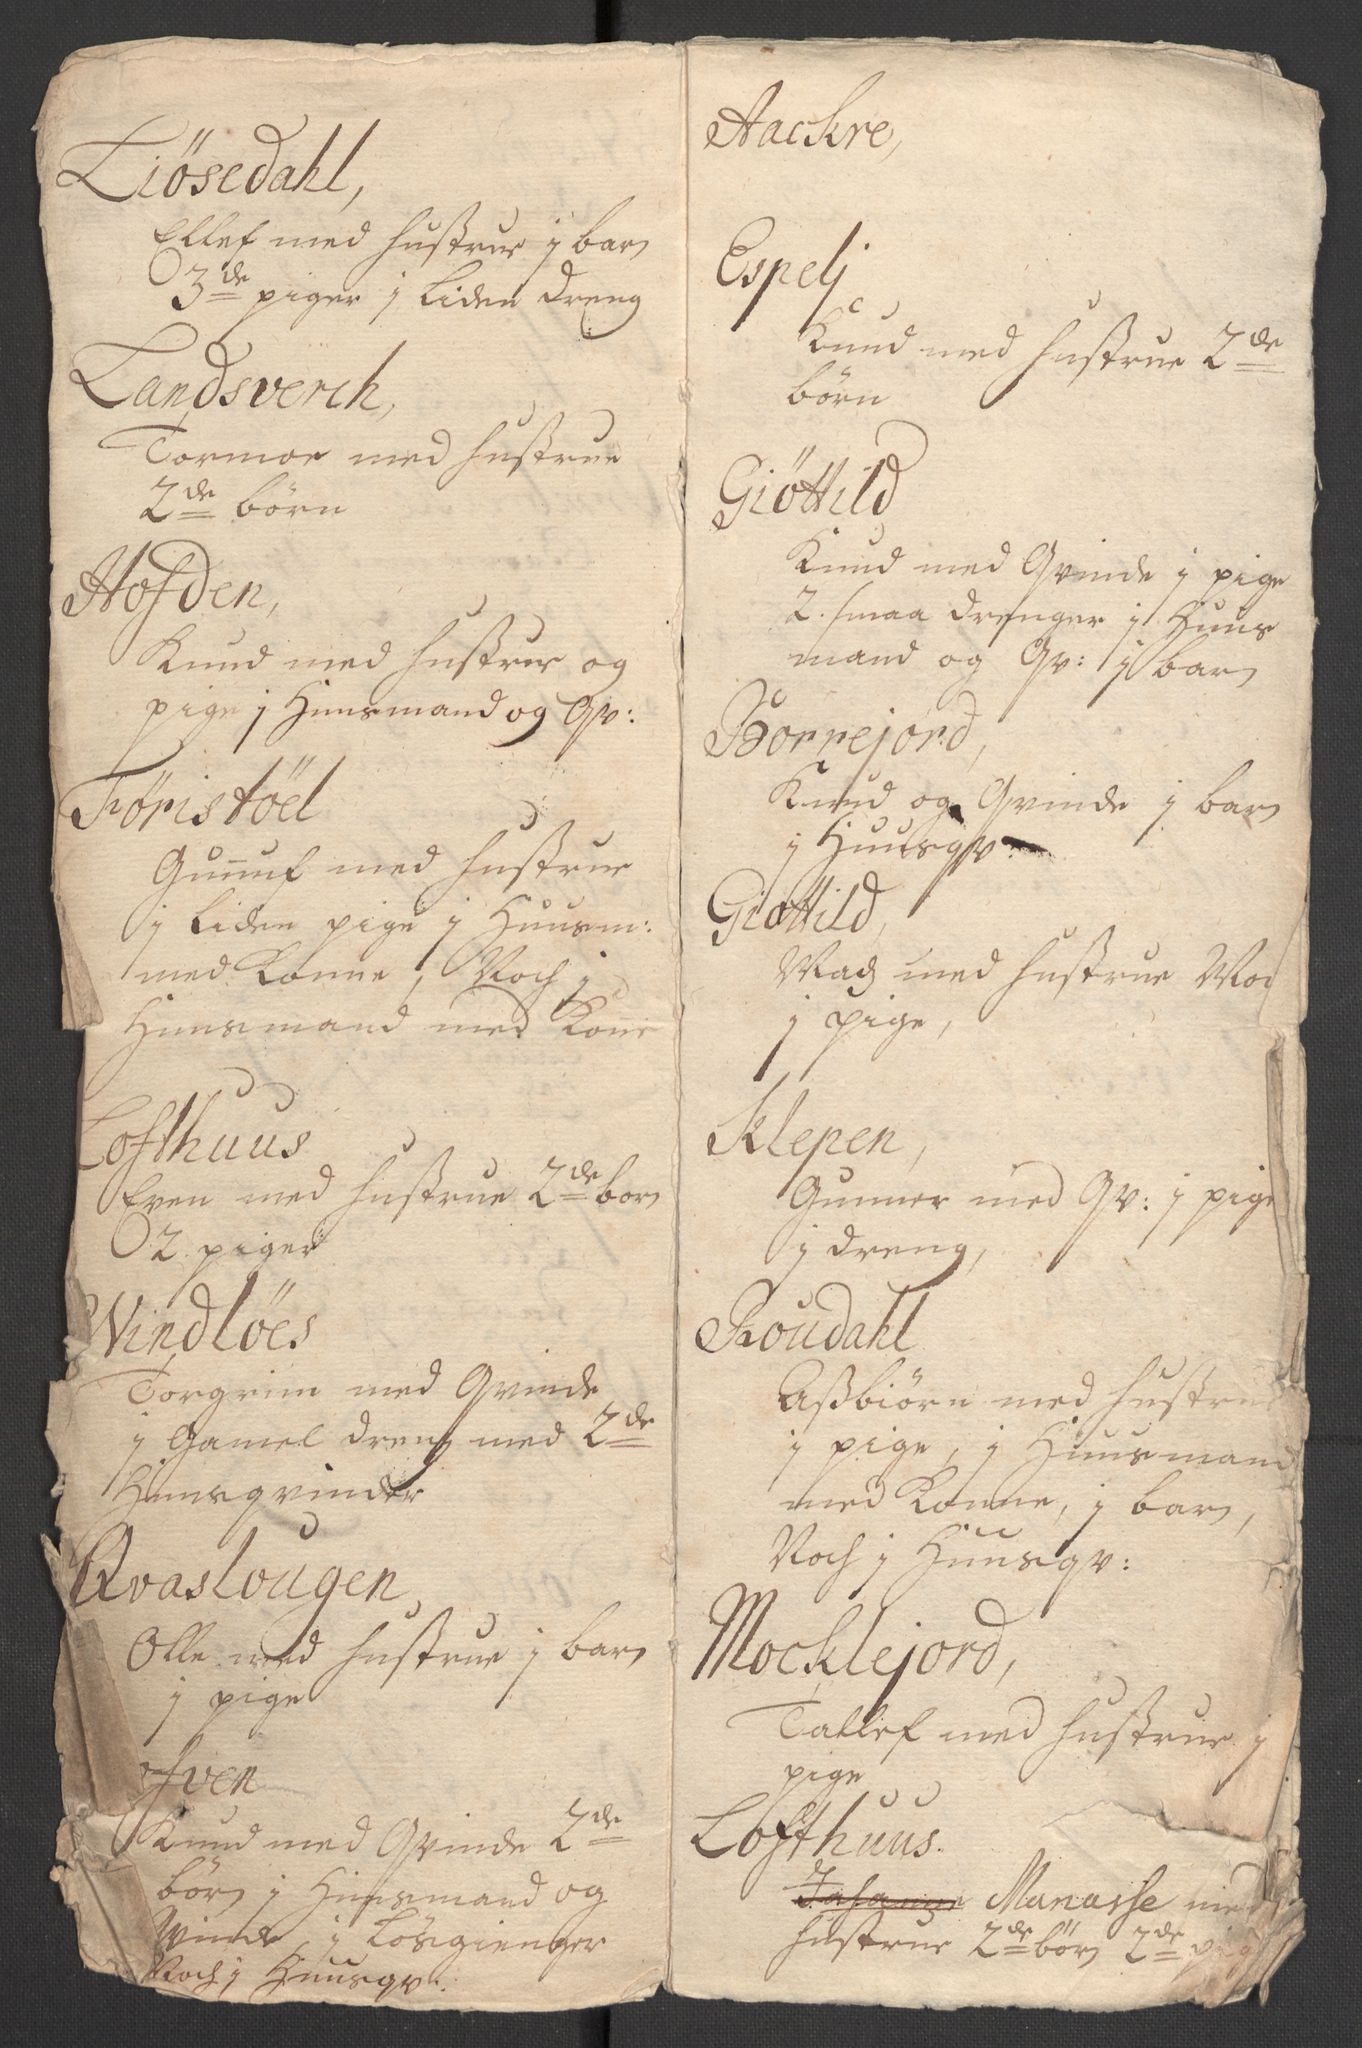 Liösedahl,
Ellef med hustrue j barn
3de piger j liden dreng
Landsverch,
Tormoe med hustrue
2de börn
Hofden,
Knud med hustrue og
pige j Huusmand og Qv:
Föristöel
Gunnuf med hustrue
j liden pige j Huusm:
med Konne, Noch j
Huusmand med Kone
Lofthuus
Even med hustrue 2de born
2 piger
Windlöes
Torgrim med Qvinde
j Gamel dreng med 2de
Huusqvinder
Qvaslougen,
Olle med hustrue j barn
j pige
Knud med Qvinde 2de
börn j Huusmand og
j Lösgienger
Noch j Huusqv:
Aackre,
Espelj
Knud med hustrue 2de
börn
Giöttild
Knud med Qvinde j pige
2. smaa drenger j Huus
mand og Qv: j barn
Borrejord,
Knud og Qvinde j barn
j Huusqv
Giöttild,
Mads med hustrue Noc
j pige,
Klepen,
Gunner med Qv: j pige
j dreng,
Roudahl
Assbiörn med hustrue
j pige, j Huusmand
med Konne, j barn,
Noch j Huusqv:
Mocklejord,
Tallef med hustrue j
pige
Lofthuus.
Manasse med
hustrue 2de börn 2de pig